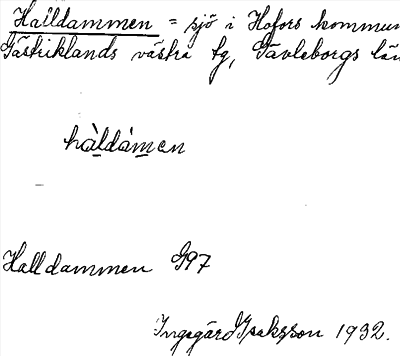 Halldammen = sjö i Hofors kommun
Gästriklands västra tg, Gävleborgs län
hàldámen
Halldammen G97
Ingegärd Isaksson 1932.